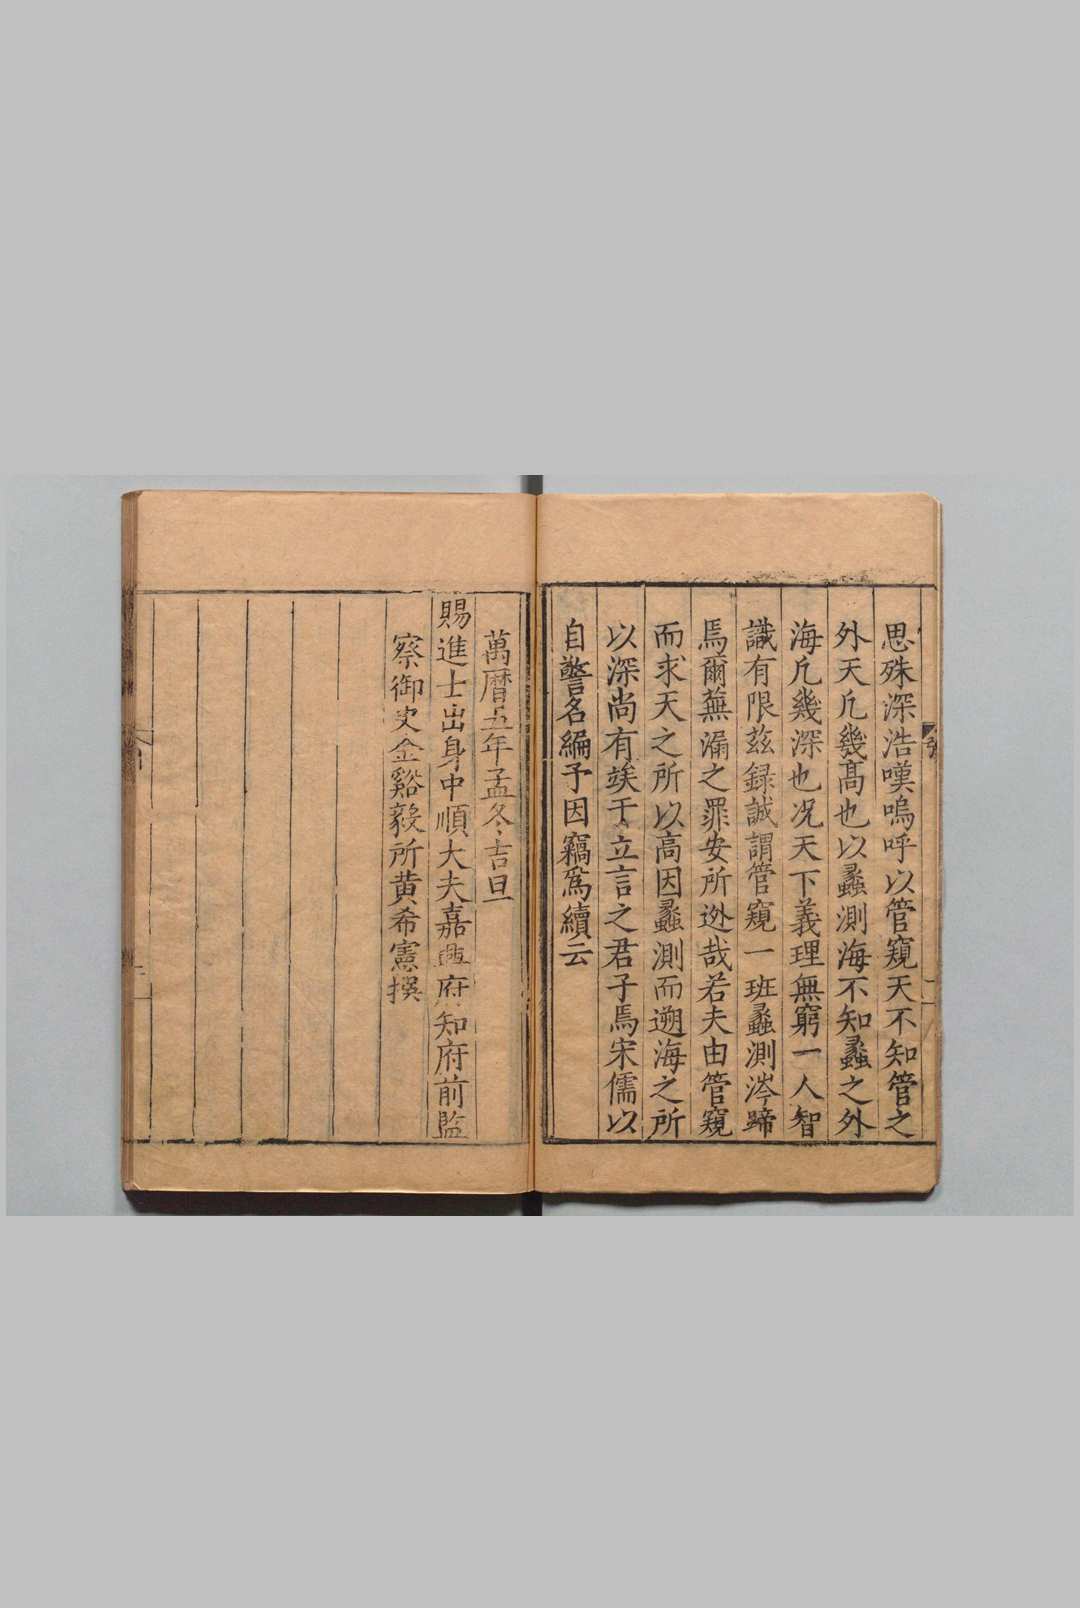 思殊深浩嘆嗚呼以管窺天不知管之
外天凢幾髙也以蠡測海不知蠡之外
海凢幾深也况天下義理無窮一人智
識有限茲録誠謂管窺一班蠡測涔蹄
焉爾蕪漏之罪安所迯哉若夫由管窺
而求天之所以高因蠡測而遡海之所
以深尚有竢于立言之君子焉宋儒以
自警名編予因竊爲續云
萬曆五年孟冬吉旦
賜進士出身中順大夫嘉興府知府前監
察御史金谿毅所黄希憲撰